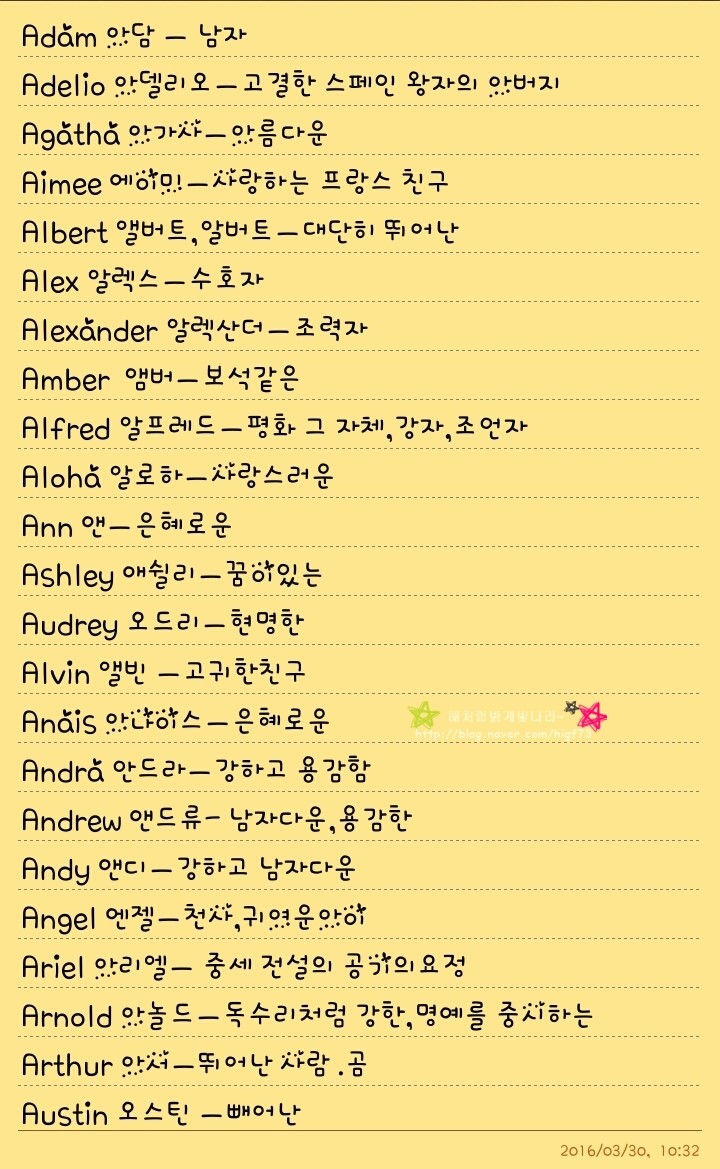 Adam 아담 – 남자
Adelio 아델리오 – 고결한 스페인 왕자의 아버지
Agatha 아가사 – 아름다운
Aimee 에이미 – 사랑하는 프랑스 친구
Albert 앨버트,알버트 – 대단히 뛰어난
Alex 알렉스 – 수호자
Alexander 알렉산더 – 조력자
Amber 앰버 – 보석같은
Alfred 알프레드 – 평화 그 자체,강자,조언자
Aloha 알로하 – 사랑스러운
Ann 앤 – 은혜로운
Ashley 애쉴리 – 꿈이있는
Audrey 오드리 – 현명한
Alvin 앨빈 – 고귀한친구
Anais 아나이스 – 은혜로운
해처럼밝게빛나라~
http://blog.naver.com/higf73
Andra 안드라 – 강하고 용감함
Andrew 앤드류- 남자다운,용감한
Andy 앤디 – 강하고 남자다운
Angel 엔젤 – 천사,귀여운아이
Ariel 아리엘 – 중세 전설의 공기의요정
Arnold 아놀드 – 독수리처럼 강한,명예를 중시하는
Arthur 아서 – 뛰어난 사람 .곰
Austin 오스틴 – 빼어난
2016/03/30, 10:32